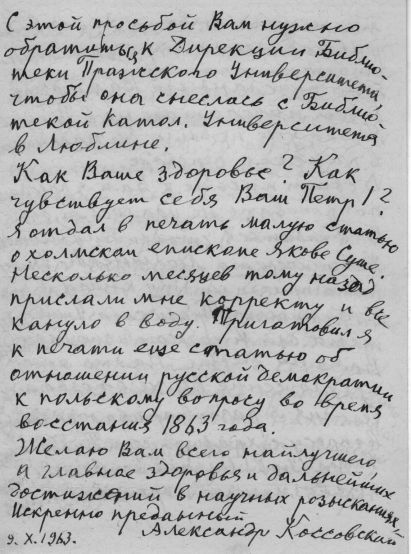 С этой просьбой Вам нужно
обратиться к Дирекции Библио-
теки Пражского Университета,
чтобы она снеслась с Библио-
текой Катол. Университета
в Люблине.
Как Ваше здоровье? Как
чувствует себя Ваш Петр!?
Я отдал в печать малую статью
о холмском епископе Якове Суше.
Несколько месяцев тому назад
прислали мне корректу и все
кануло в воду. Приготовил я
к печати еще статью об
отношении русской демократии
к польскому вопросу во время
восстания 1863 года.
Желаю Вам всего найлучшего
а главное здоровья и дальнейших
достижений в научных розысканиях.
Искренно преданный
Александр Коссовский
9. X. 1963.